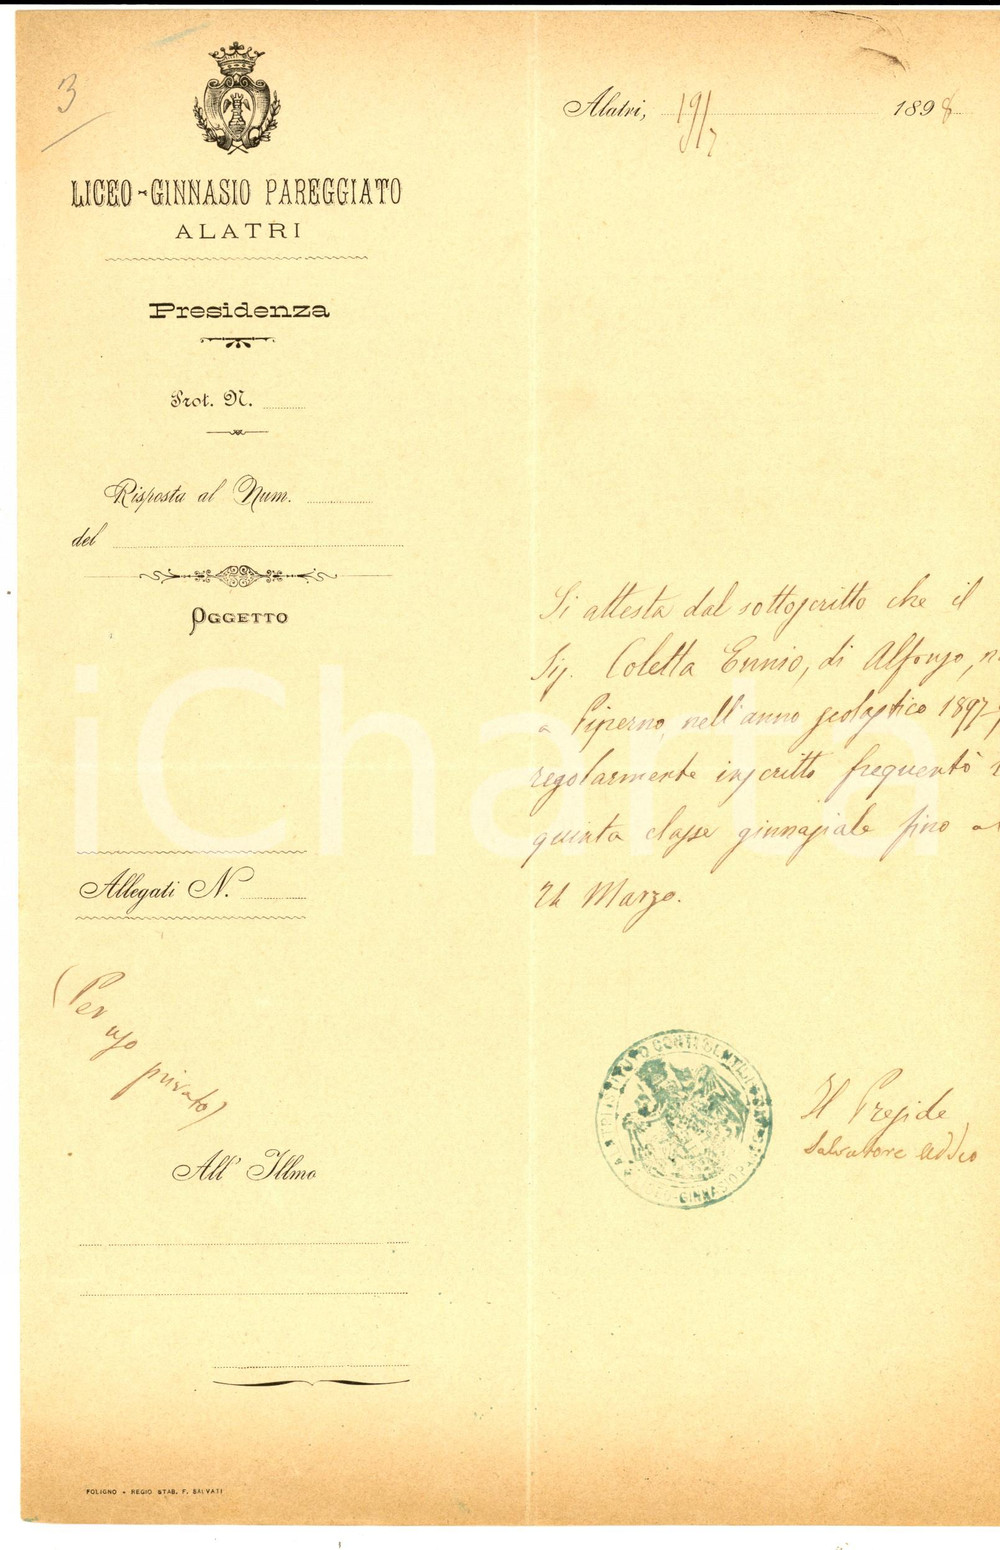 3
LICEO-GINNASIO PAREGGIATO
ALATRI
Presidenza
Prot. N.
Risposta al Num.
del
OGGETTO
Allegati N.
(Per
uso
privato)
All' Illmo
FOLIGNO - REGIO STAB. F. SALVATI
Alatri, 19/7 1898
Si attesta dal sottoscritto che il
Sig. Coletta Ennio, di Alfonso, n
a Piperno, nell'anno scolastico 1897-9
regolarmente inscritto frequentò
quinta classe ginnasiale fino al
24 Marzo.
ISTITUTO CONTI GENTILI
LICEO-GINNASIO
Il Preside
Salvatore
iCharta